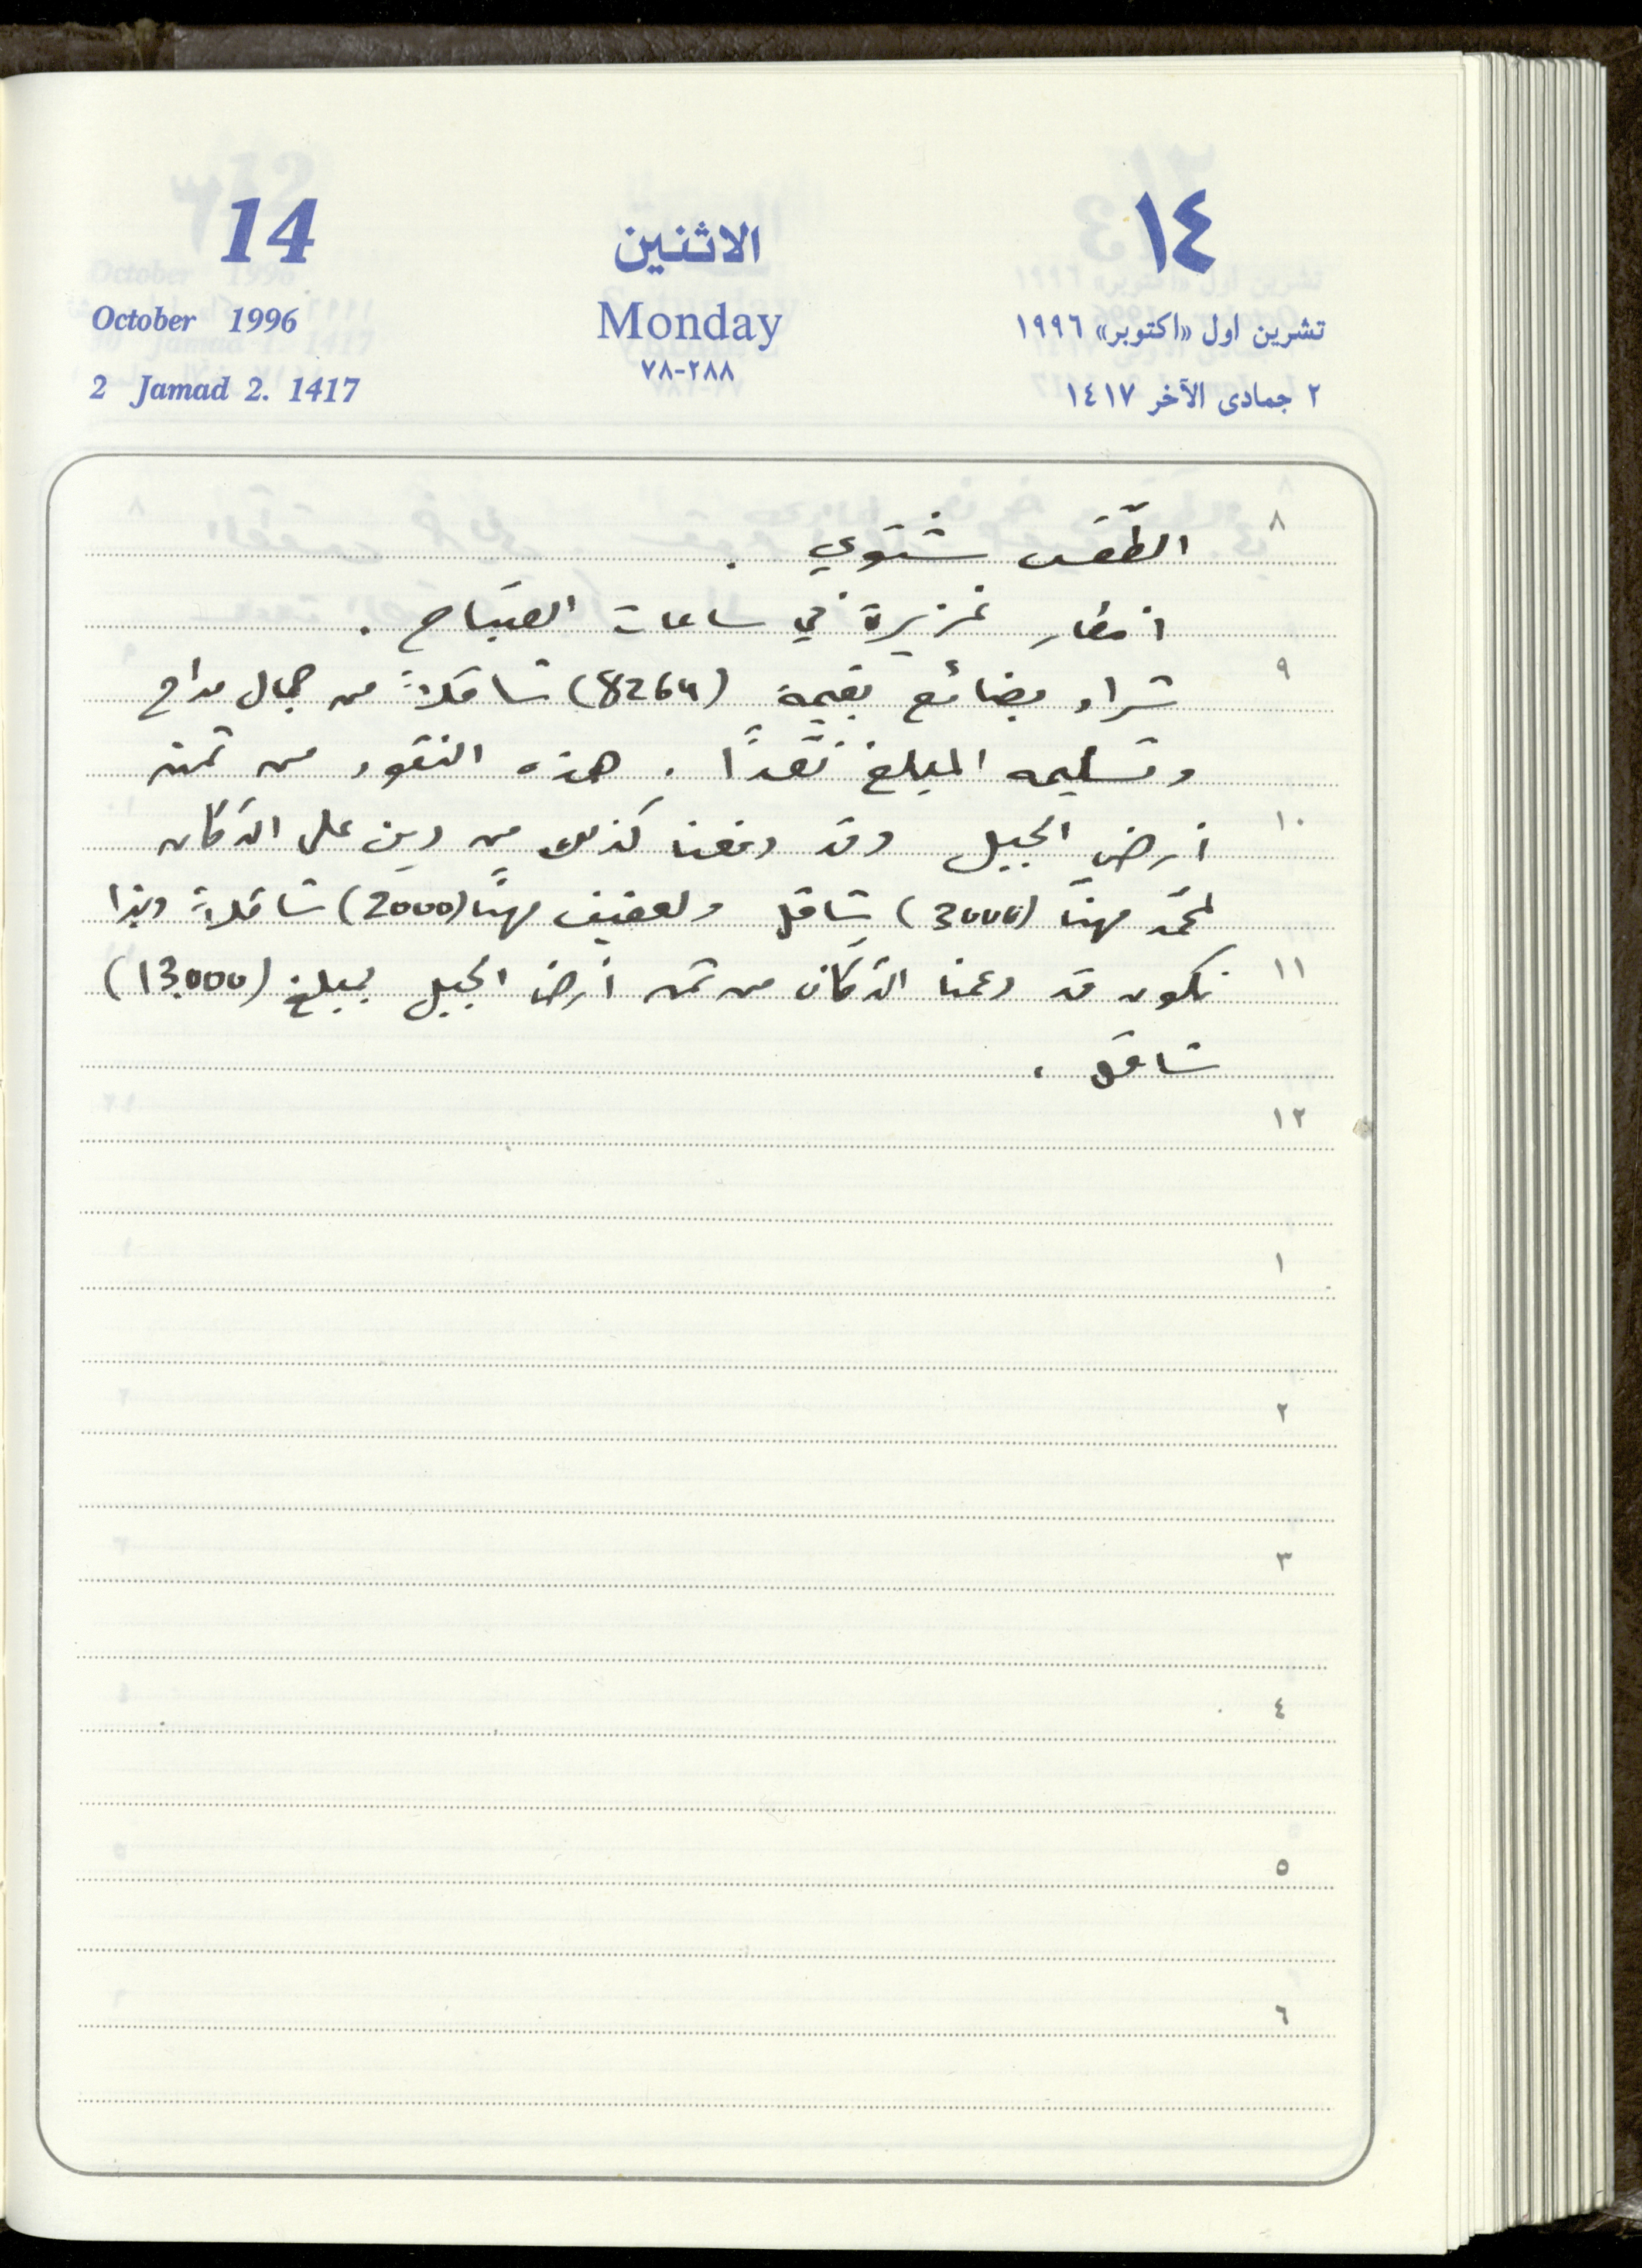 14 الاثنين ١٤
October 1996 Monday تشرين اول «اكتوبر» ١٩٩٦
٧٨-٢٨٨
2 Jamad 2. 1417 ٢ جمادى الآخر ١٤١٧
٨
الطّقس شتوي .
أمطار غزيرة في ساعات الصّباح .
٩
شراء بضائع بقيمة (8264) شاقلاً من جمال مداح
وتسليمه المبلغ نقداً . هذه النقود من ثمن
١٠
أرض الجبل وقد دفعنا كذلك من دين على الدّكان
لمحمّد مهنّا (3000) شاقل ولعفيف مهنّا (2000) شاقلاً وبذا
١١
نكون قد دعمنا الدّكان من ثمن أرض الجبل بمبلغ (13.000)
شاقل .
١٢
١
٢
٣
٤
٥
٦